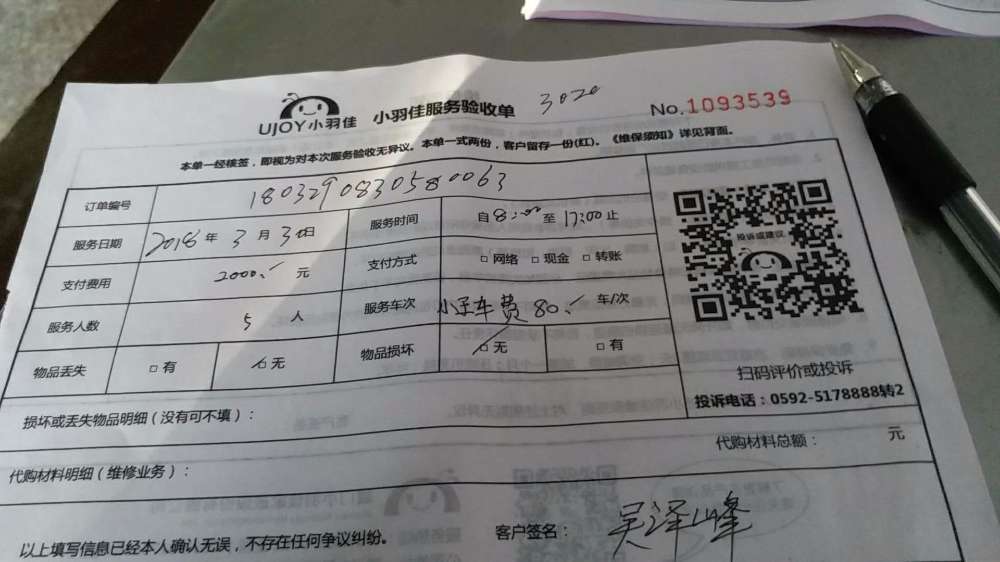 UJOY小羽佳 小羽佳服务验收单 3020 No.1093539
本单一经核签，即视为对本次服务验收无异议。本单一式两份，客户留存一份(红)。《维保须知》详见背面。
订单编号 1803290830580063
服务日期 2018年3月30日 服务时间 自8:00至17:00止
支付费用 2000.元 支付方式 □网络 □现金 □转账
服务人数 5人 服务车次 小车费80.车/次
物品丢失 □有 ☑无 物品损坏 ☑无 □有
投诉或建议
扫码评价或投诉
投诉电话：0592-5178888转2
损坏或丢失物品明细（没有可不填）：
代购材料总额： 元
代购材料明细（维修业务）：
以上填写信息已经本人确认无误，不存在任何争议纠纷。
客户签名： 吴泽峰